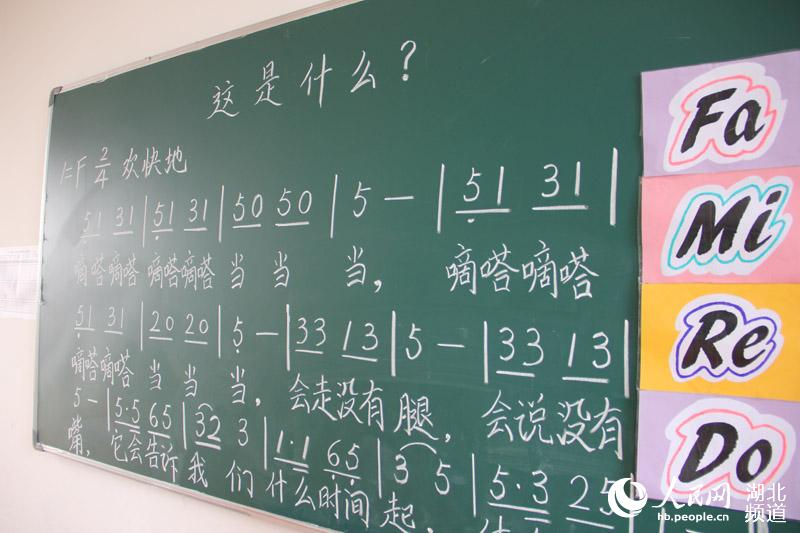 这是什么?
1=F 2/4 欢快地
51 31|51 31|50 50|5 -|51 31|
嘀嗒嘀嗒 嘀嗒嘀嗒 当 当 当, 嘀嗒嘀嗒
51 31|20 20|5 -|33 13|5 -|33 13|
嘀嗒嘀嗒 当 当 当, 会走没有腿, 会说没有
5 -|5·5 65|32 3|1·1 65|3 5|5·3 25|
嘴, 它会告诉我们什么时间起,
Fa
Mi
Re
Do
人民网 湖北频道
hb.people.cn